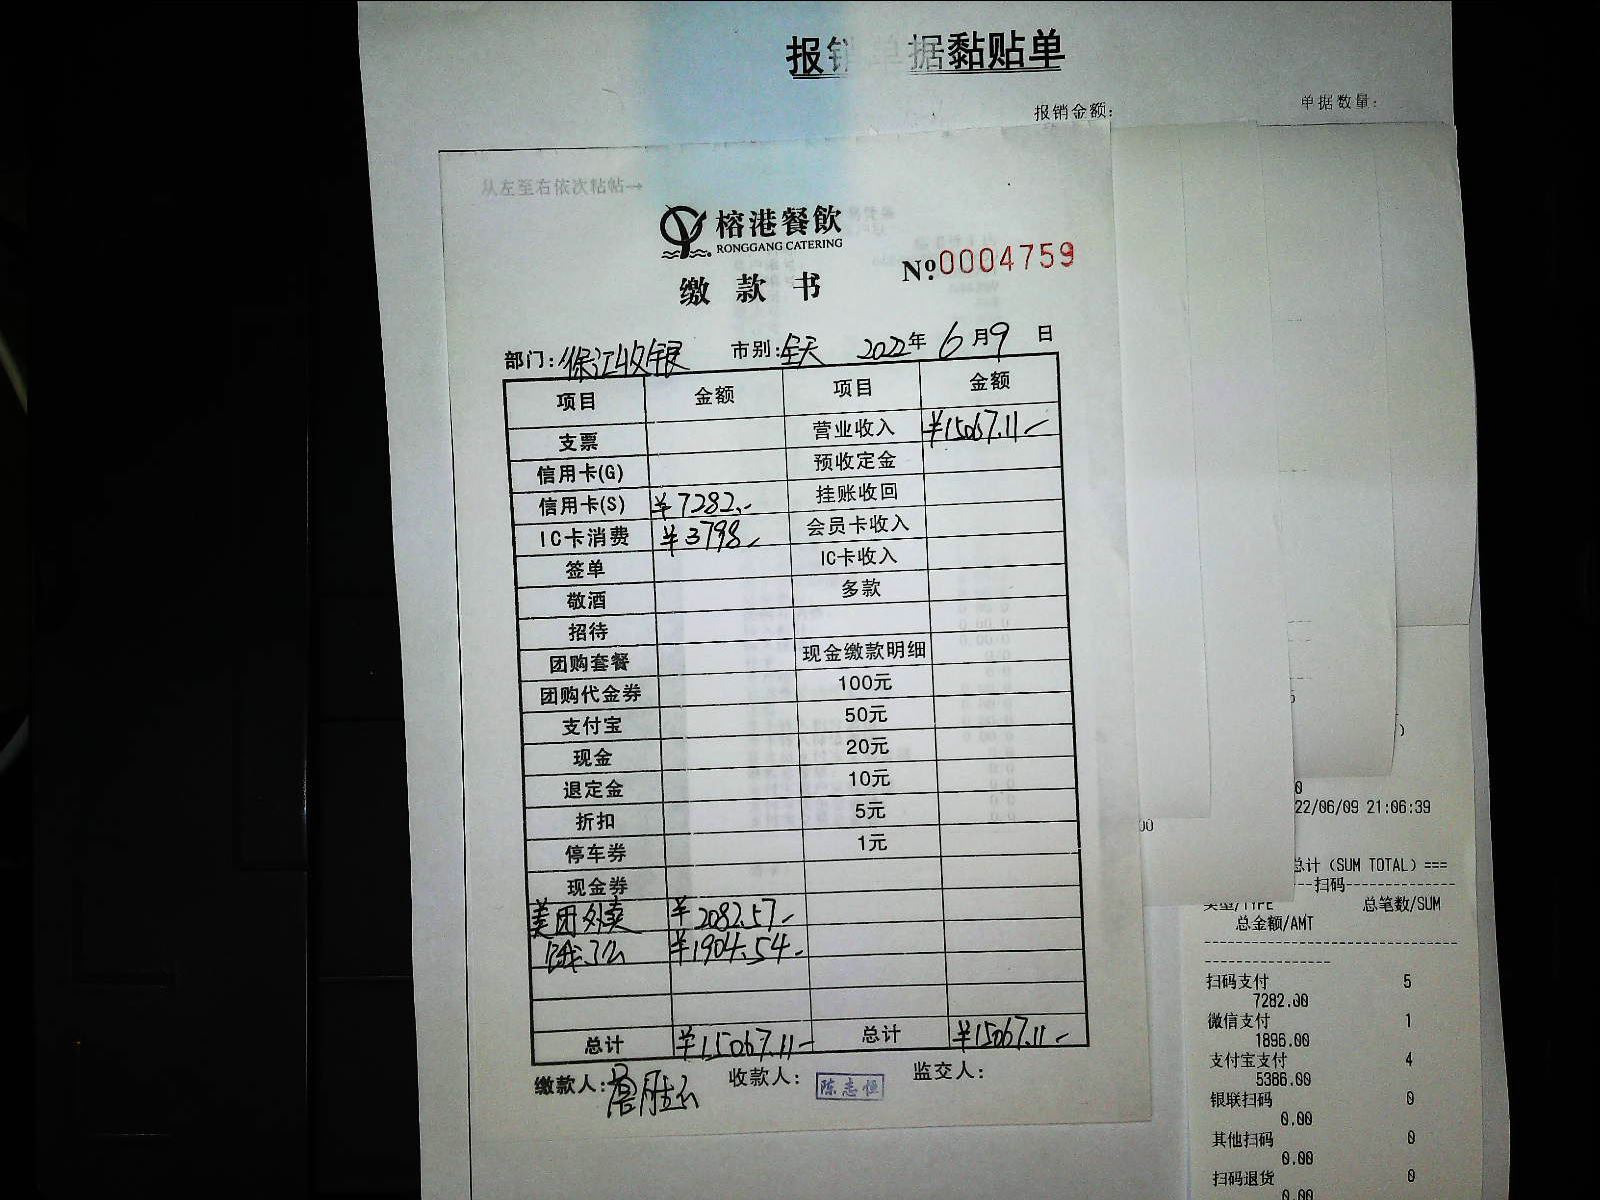 报销单据黏贴单
报销金额:
单据数量:
从左至右依次粘帖→
榕港餐飲
RONGGANG CATERING
缴款书
Nº0004759
部门:保江收银 市别:全天 2022年6月9日
项目 金额 项目 金额
支票 营业收入 ¥15067.11-
信用卡(G) 预收定金
信用卡(S) ¥7282.- 挂账收回
IC卡消费 ¥3798- 会员卡收入
签单 IC卡收入
敬酒 多款
招待
团购套餐 现金缴款明细
团购代金券 100元
支付宝 50元
现金 20元
退定金 10元
折扣 5元
停车券 1元
现金券
美团外卖 ¥2082.57-
饿了么 ¥1904.54-
总计 ¥15067.11- 总计 ¥15067.11-
缴款人: 收款人: 陈志恒 监交人:
22/06/09 21:06:39
总计(SUM TOTAL)===
扫码
类型/TYPE 总笔数/SUM
总金额/AMT
扫码支付 5
7282.00
微信支付 1
1896.00
支付宝支付 4
5386.00
银联扫码 0
0.00
其他扫码 0
0.00
扫码退货 0
0.00